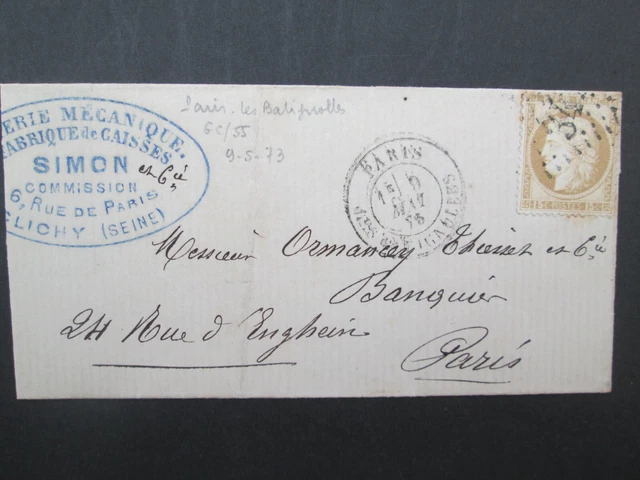 ERIE MÉCANIQUE.
FABRIQUE de CAISSES
SIMON et Cie
COMMISSION
6, RUE DE PARIS
CLICHY (SEINE)
Paris - les Batignolles
GC/55
9-5-73
PARIS
MAI
15c POSTES 15c
Messieurs Ormancey Thiesset et Cie
Banquier
24 Rue d'Enghein
Paris